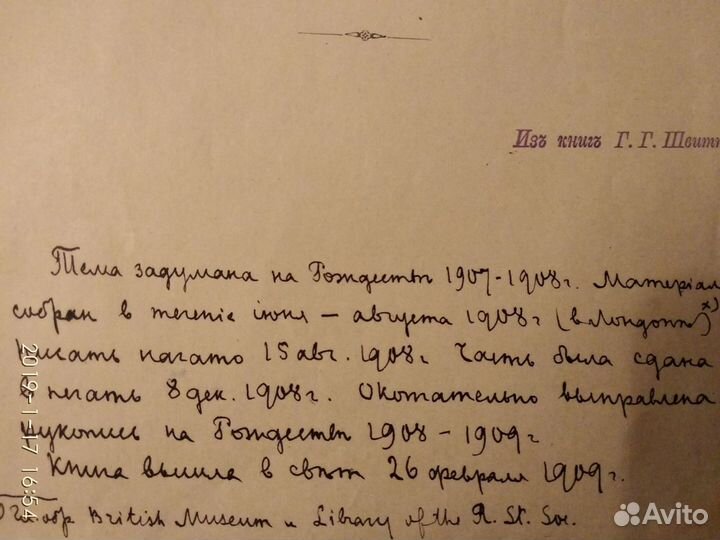 Изъ книгъ Г. Г. Швитт
Тема задумана на Рождествѣ 1907-1908 г. Матеріал
собран в теченіе іюня – августа 1908 г (в Лондонѣ) х)
Писать начато 15 авг. 1908 г. Часть была сдана
в печать 8 дек. 1908 г. Окочательно выправлена
рукопись на Рождествѣ 1908 – 1909 г.
Книга вышла в свѣт 26 февраля 1909 г.
British Museum и Library of the R. St. Soc.
2019-1-17 16:54
Avito